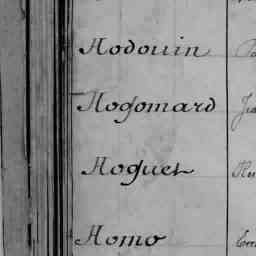 Hodouin
Hogomard
Hoguet
Homo